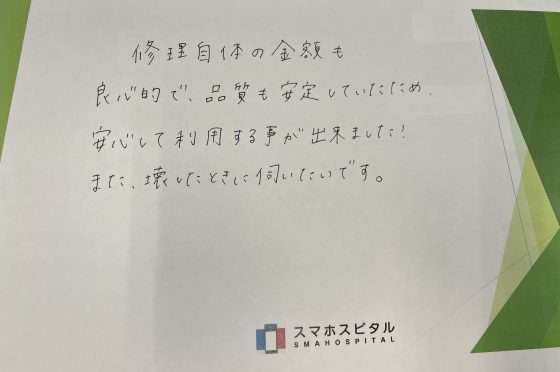 修理自体の金額も
良心的で、品質も安定していたため、
安心して利用する事が出来ました!
また、壊したときに伺いたいです。
スマホスピタル
SMAHOSPITAL